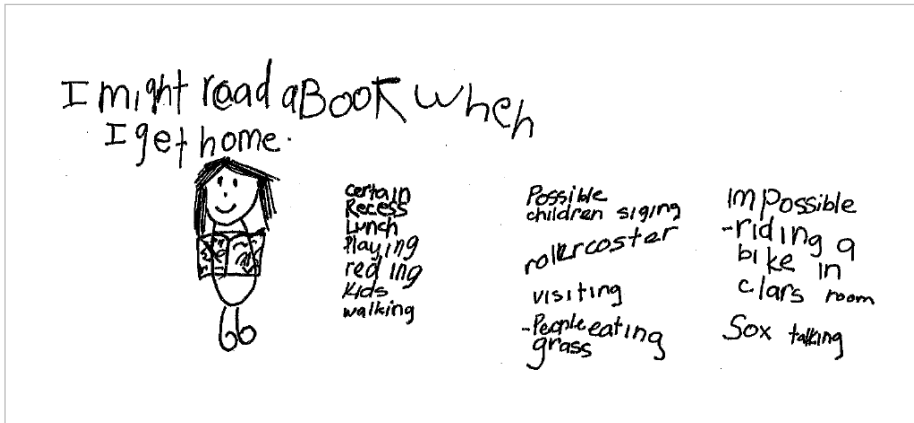 I might read a Book when
I get home.
certain
Recess
Lunch
Playing
reding
Kids
walking
Possible
children siging
rollercoster
visiting
-People eating
grass
Impossible
-riding a
bike in
clars room
Sox talking